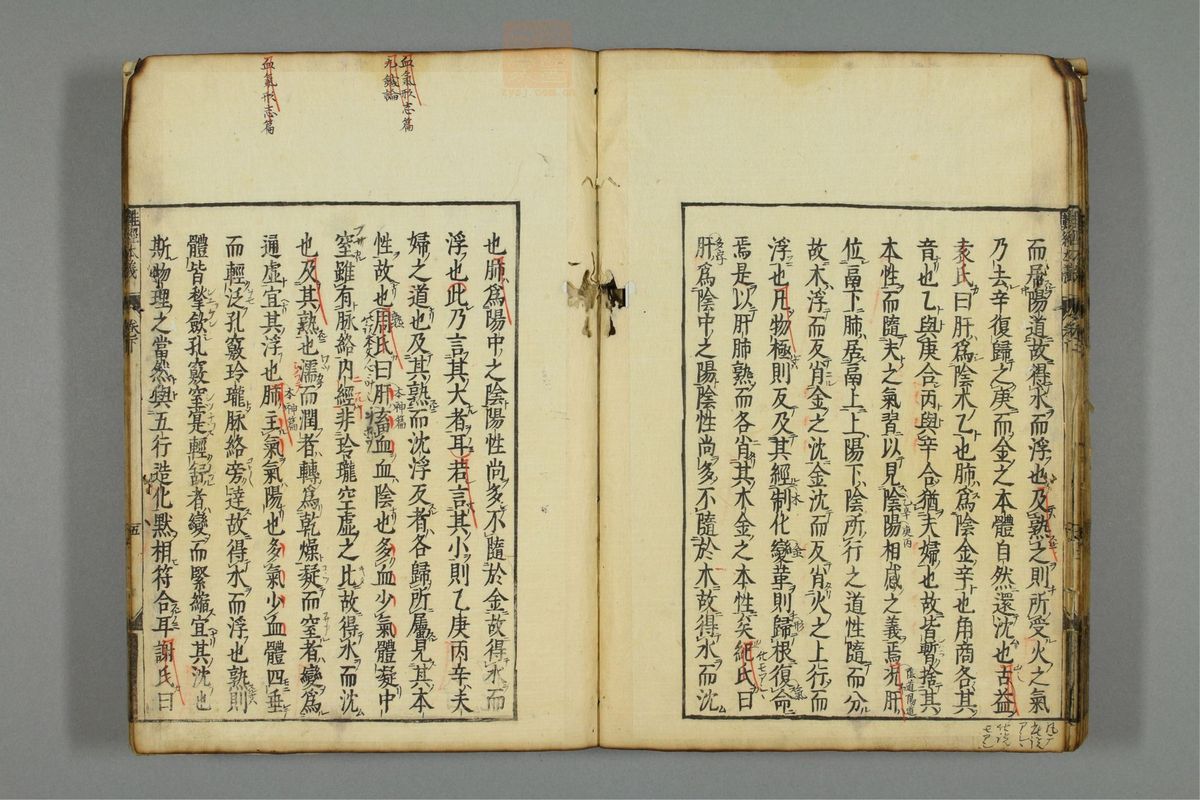 而居陽道故得水而浮也及熟之則所受火之氣
乃去辛復歸之庚而金之本體自然還沈也古益
袁氏曰肝爲陰木乙也肺爲陰金辛也角商各其
音也乙與庚合丙與辛合猶夫婦也故皆暫捨其
本性而隨夫之氣習以見陰陽相感之義焉况肝
位鬲下肺居鬲上上陽下陰所行之道性隨而分
故木浮而反肖金之沈金沈而反肖火之上行而
浮也凡物極則反及其經制化變革則歸根復命
焉是以肝肺熟而各肖其木金之本性矣紀氏曰
肝爲陰中之陽陰性尚多不隨於木故得水而沈
血氣形志篇
九鍼論
血氣形志篇
也肺爲陽中之陰陽性尚多不隨於金故得水而
浮也此乃言其大者耳若言其小則乙庚丙辛夫
婦之道也及其熟而沈浮反者各歸所屬見其本
性故也周氏曰肝畜血血陰也多血少氣體凝中
本神篇
窒雖有脉絡内經非玲瓏空虛之比故得水而沈
也及其熟也濡而潤者轉爲乾燥凝而窒者變爲
通虛宜其浮也肺主氣氣陽也多氣少血體四垂
本神篇
而輕泛孔竅玲瓏脉絡旁達故得水而浮也熟則
體皆揫斂孔竅窒實輕舒者變而緊縮宜其沈也
斯物理之當然與五行造化默相符合耳謝氏曰
五